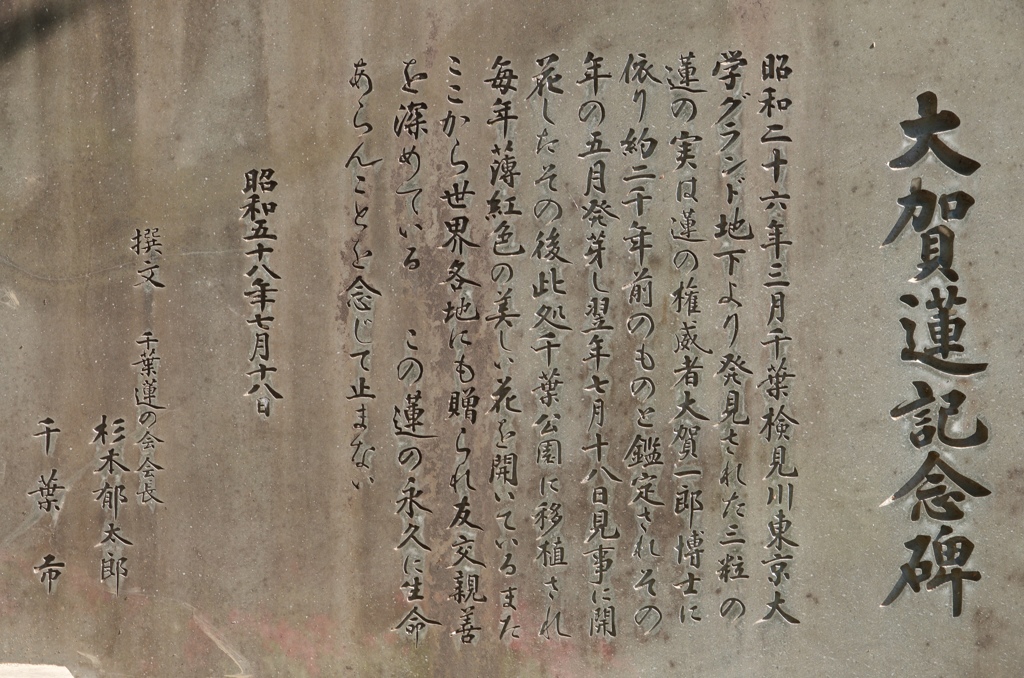 大賀蓮記念碑
昭和二十六年三月千葉検見川東京大
学グランド地下より発見された三粒の
蓮の実は蓮の権威者大賀一郎博士に
依り約二千年前のものと鑑定されその
年の五月発芽し翌年七月十八日見事に開
花したその後此処千葉公園に移植され
毎年薄紅色の美しい花を開いているまた
ここから世界各地にも贈られ友交親善
を深めている この蓮の永久に生命
あらんことを念じて止まない
昭和五十八年七月十八日
撰文 千葉蓮の会会長
杉木郁太郎
千葉市